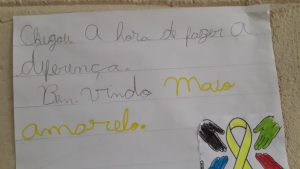 Chegou A hora de fazer A
diferença.
Bem Vindo Maio
amarelo.